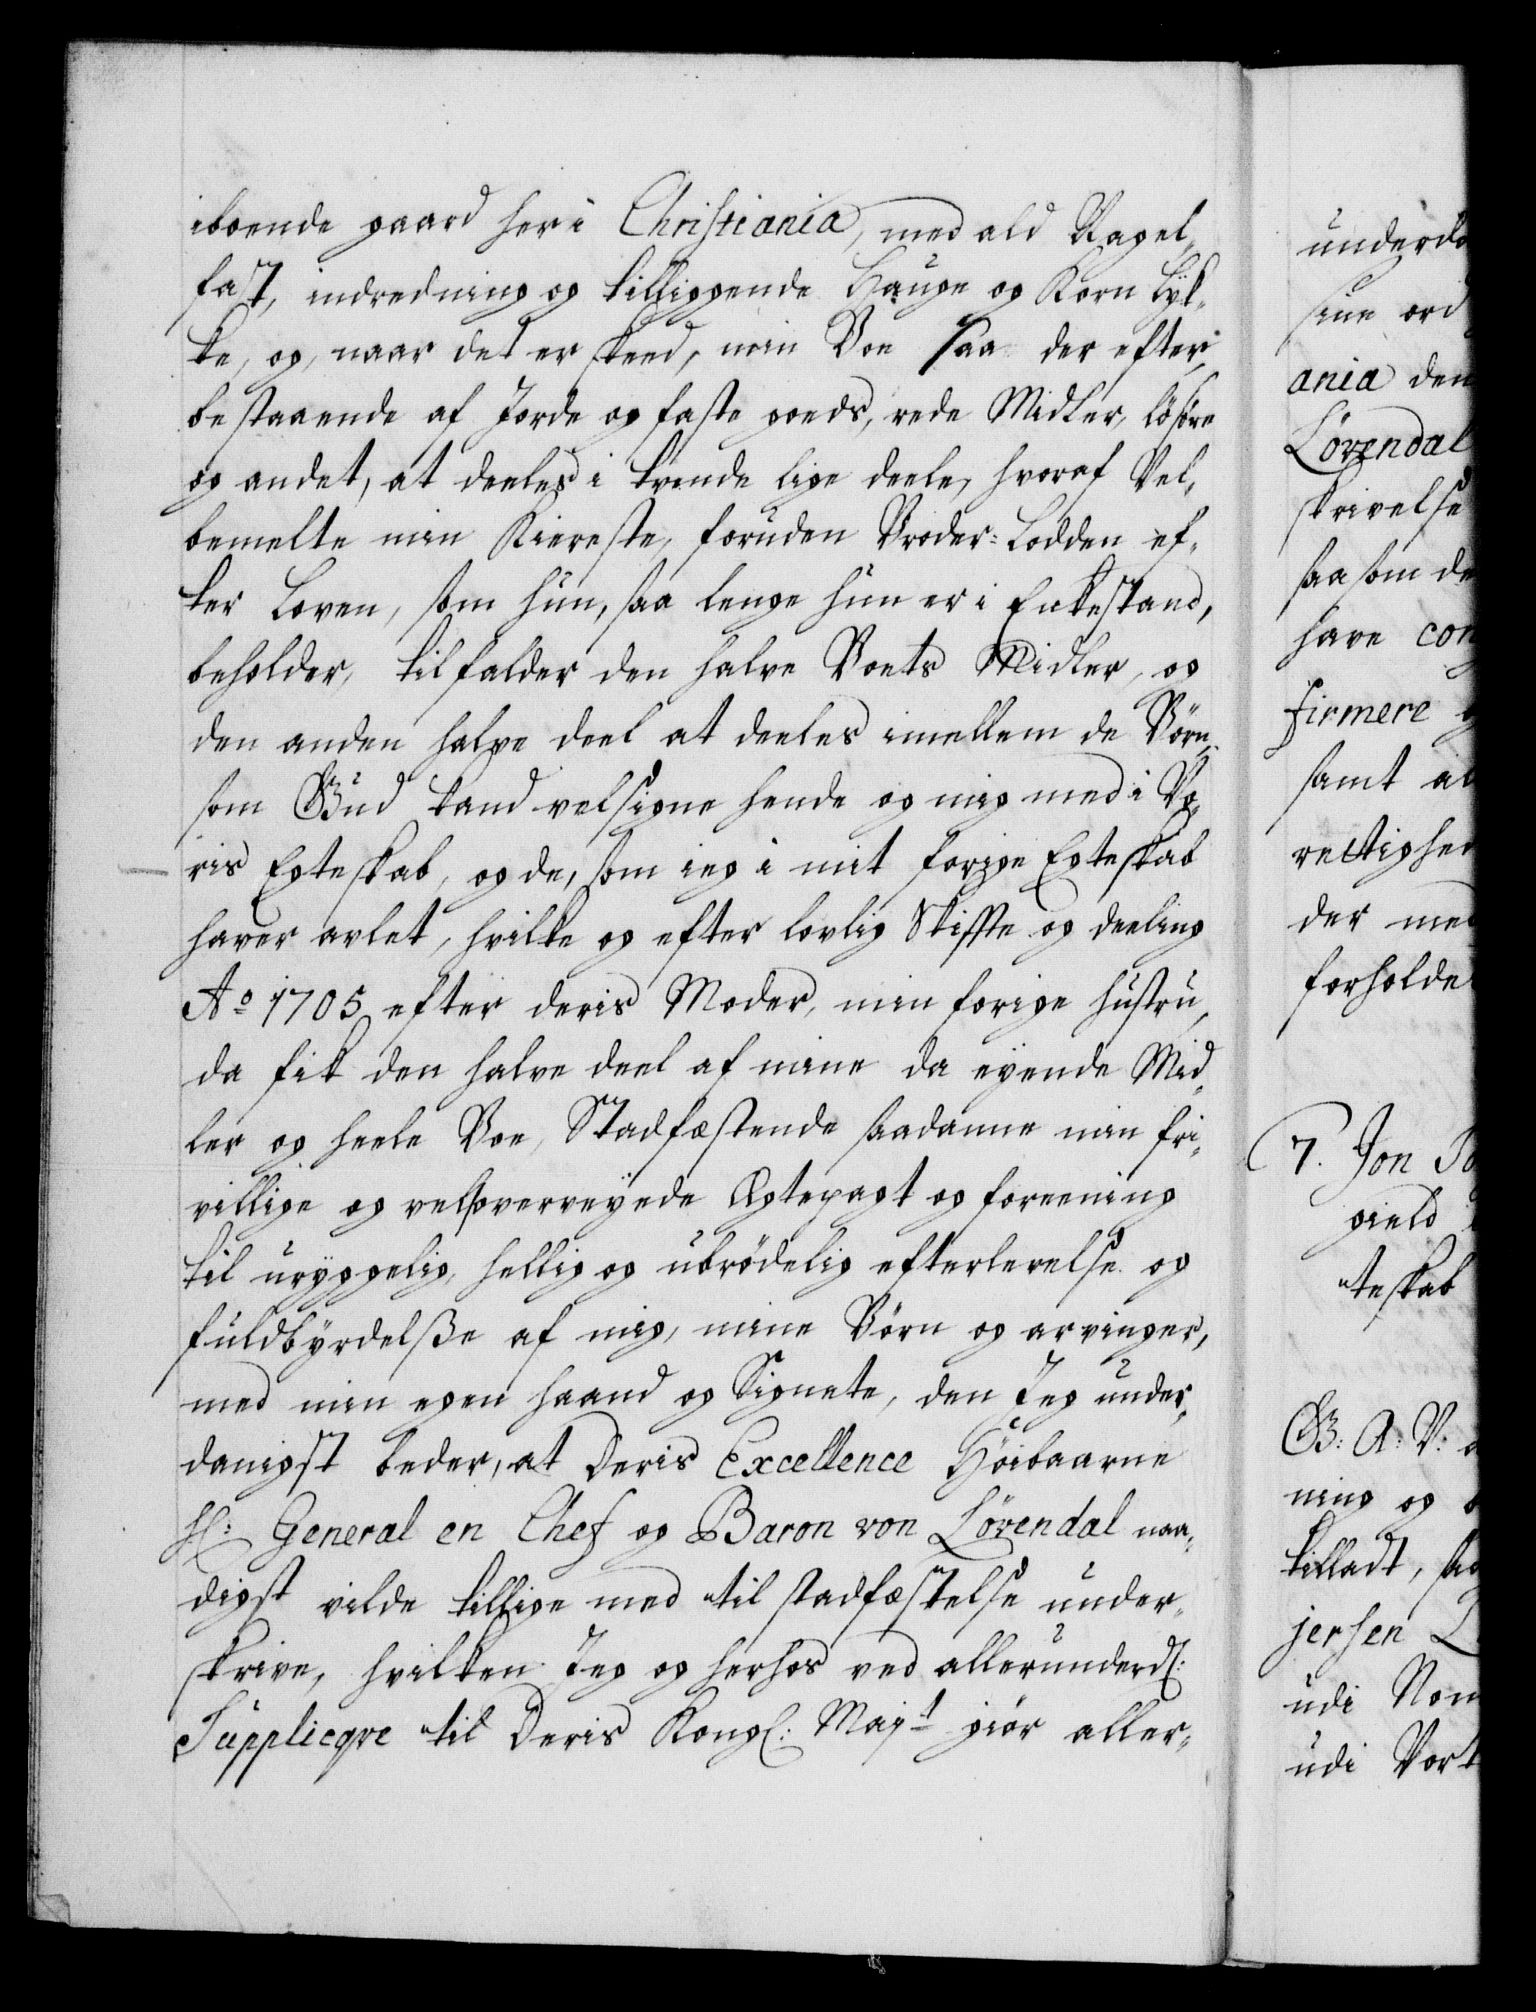 iboende gaard her i Christiania, med ald Nagel,,
fast, indredning og tilliggende Hauge og Korn Lyk,,
ke, og, naar det er skeed, min Boe saa der efter,
bestaaende af Jorde og faste goeds, rede Midler, lösöre
og andet, at deeles i tvende lige deele, hvoraf Vel,,
bemelte min Kiereste, foruden Broder-Lodden ef,,
ter Loven, som hun, saa lenge hun er i Enkestand,
beholder, tilfalder den halve Boets Midler, og
den anden halve deel at deeles imellem de Börn,
som Gud kand velsigne hende og mig med i Vo,,
ris Egteskab, og de, som ieg i mit forige Egteskab
haver avlet, hvilke og efter lovlig Skiffte og deeling
Ao 1705 efter deris Moder, min forige hustru,
da fik den halve deel af mine da eyende Mid,,
ler og heele Boe, Stadfæstende saadanne min fri,,
villige og veloverveyede Ægtepagt og foreening
til uryggelig, hellig og ubrödelig efterlevelse og
fuldbyrdelße af mig, mine Börn og arvinger,
med min egen haand og Signete, den Jeg under,,
danigst beder, at Deris Excellence Höibaarne
Hr: General en Chef og Baron von Lövendal naa,,
digst vilde tillige med til stadfæstelse under,,
skrive, hvilken Jeg og herhos ved allerunderd:
Supplicqve til Deris Kongl: Mayt giör aller,,
underda
sine ord
ania den
Lövendal
skrivelse
saasom de
have con
firmere
samt al
rettighed
der med
forholde
7. Jon
gield
teskab
G: A: V:
ning og
tilladt, saa
jersen L
udi Nom
udi Vort